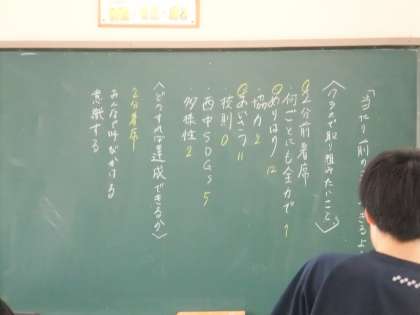 「当たり前の
〈クラスで取り組みたいこと〉
2分前着席
何ごとにも全力で 1
めりはり 12
協力 2
あいさつ 11
校則 0
西中SDGs 5
多様性 2
〈どうすれば達成できるか〉
2分着席
みんなで呼びかける
意識する